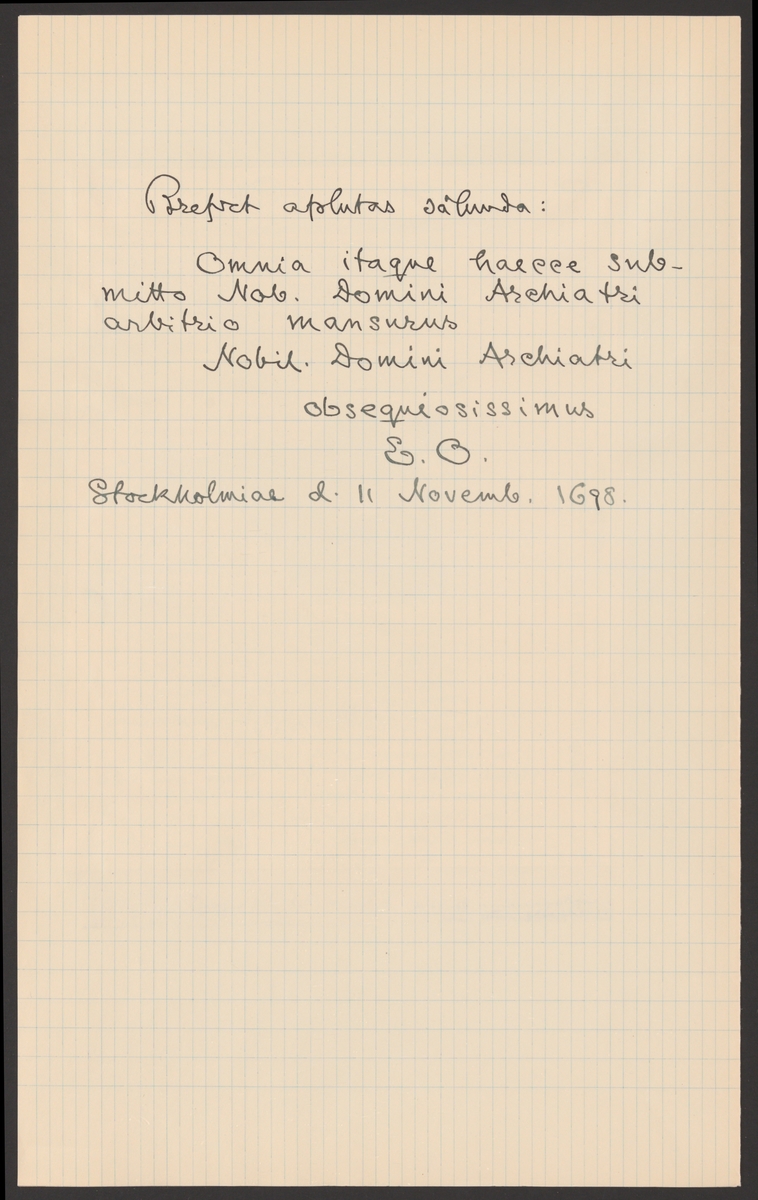 Brefvet afslutas sålunda:
Omnia itaque haecce sub-
mitto Nob. Domini Archiatri
arbitrio mansurus
Nobil. Domini Archiatri
obsequiosissimus
E. O.
Stockholmiae d. 11 Novemb. 1698.